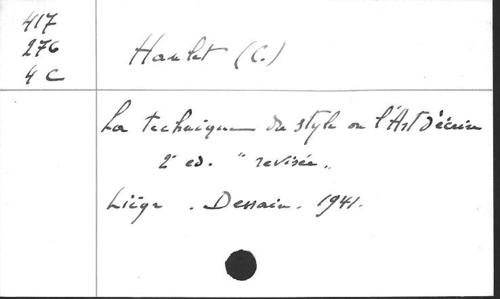 417
276
4 C
Hanlet (C.)
La technique du style ou l'Art d'écrire
2e ed. " revisée "
Liège . Dessain . 1941.